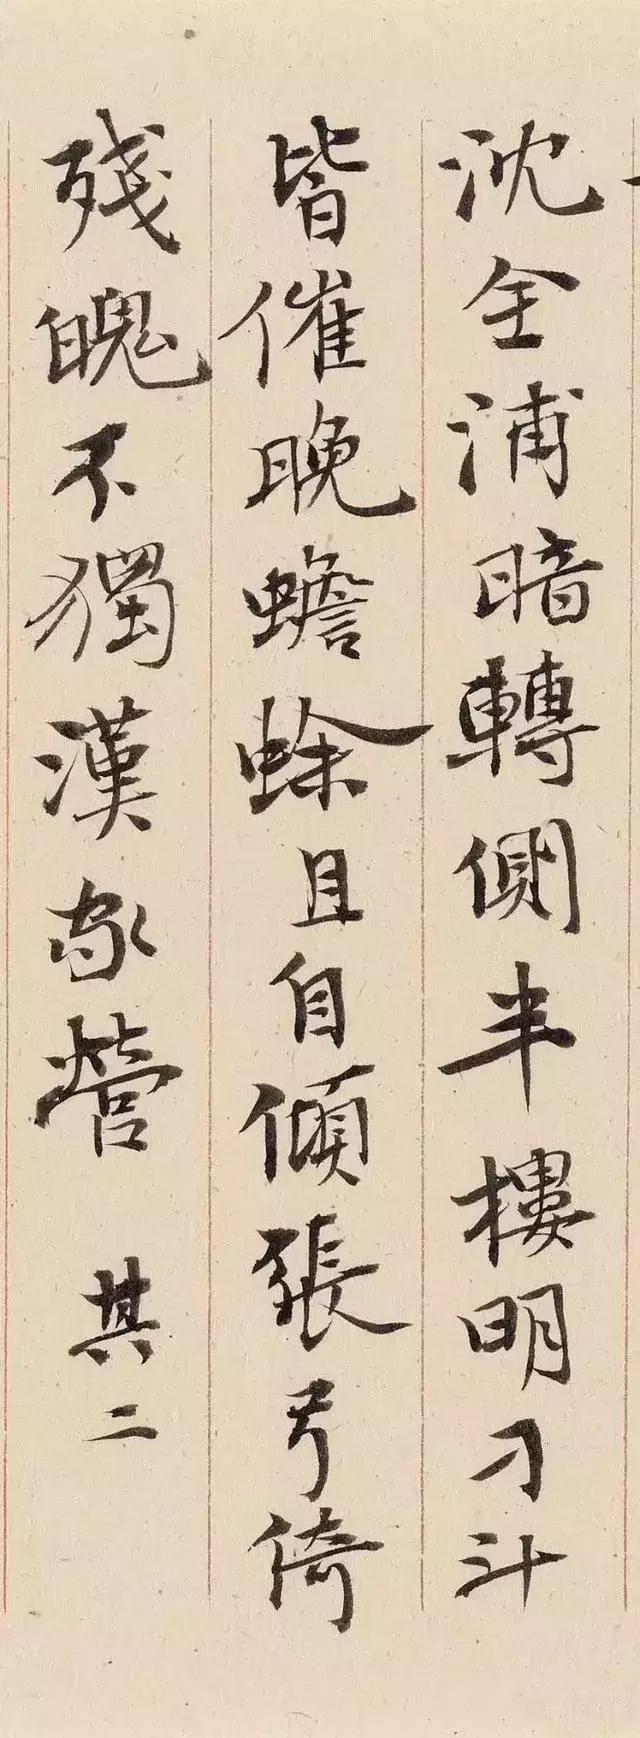 沈全浦暗轉側半樓明刁斗
皆催晚蟾蜍且自傾張弓倚
殘魄不獨漢家營 其二